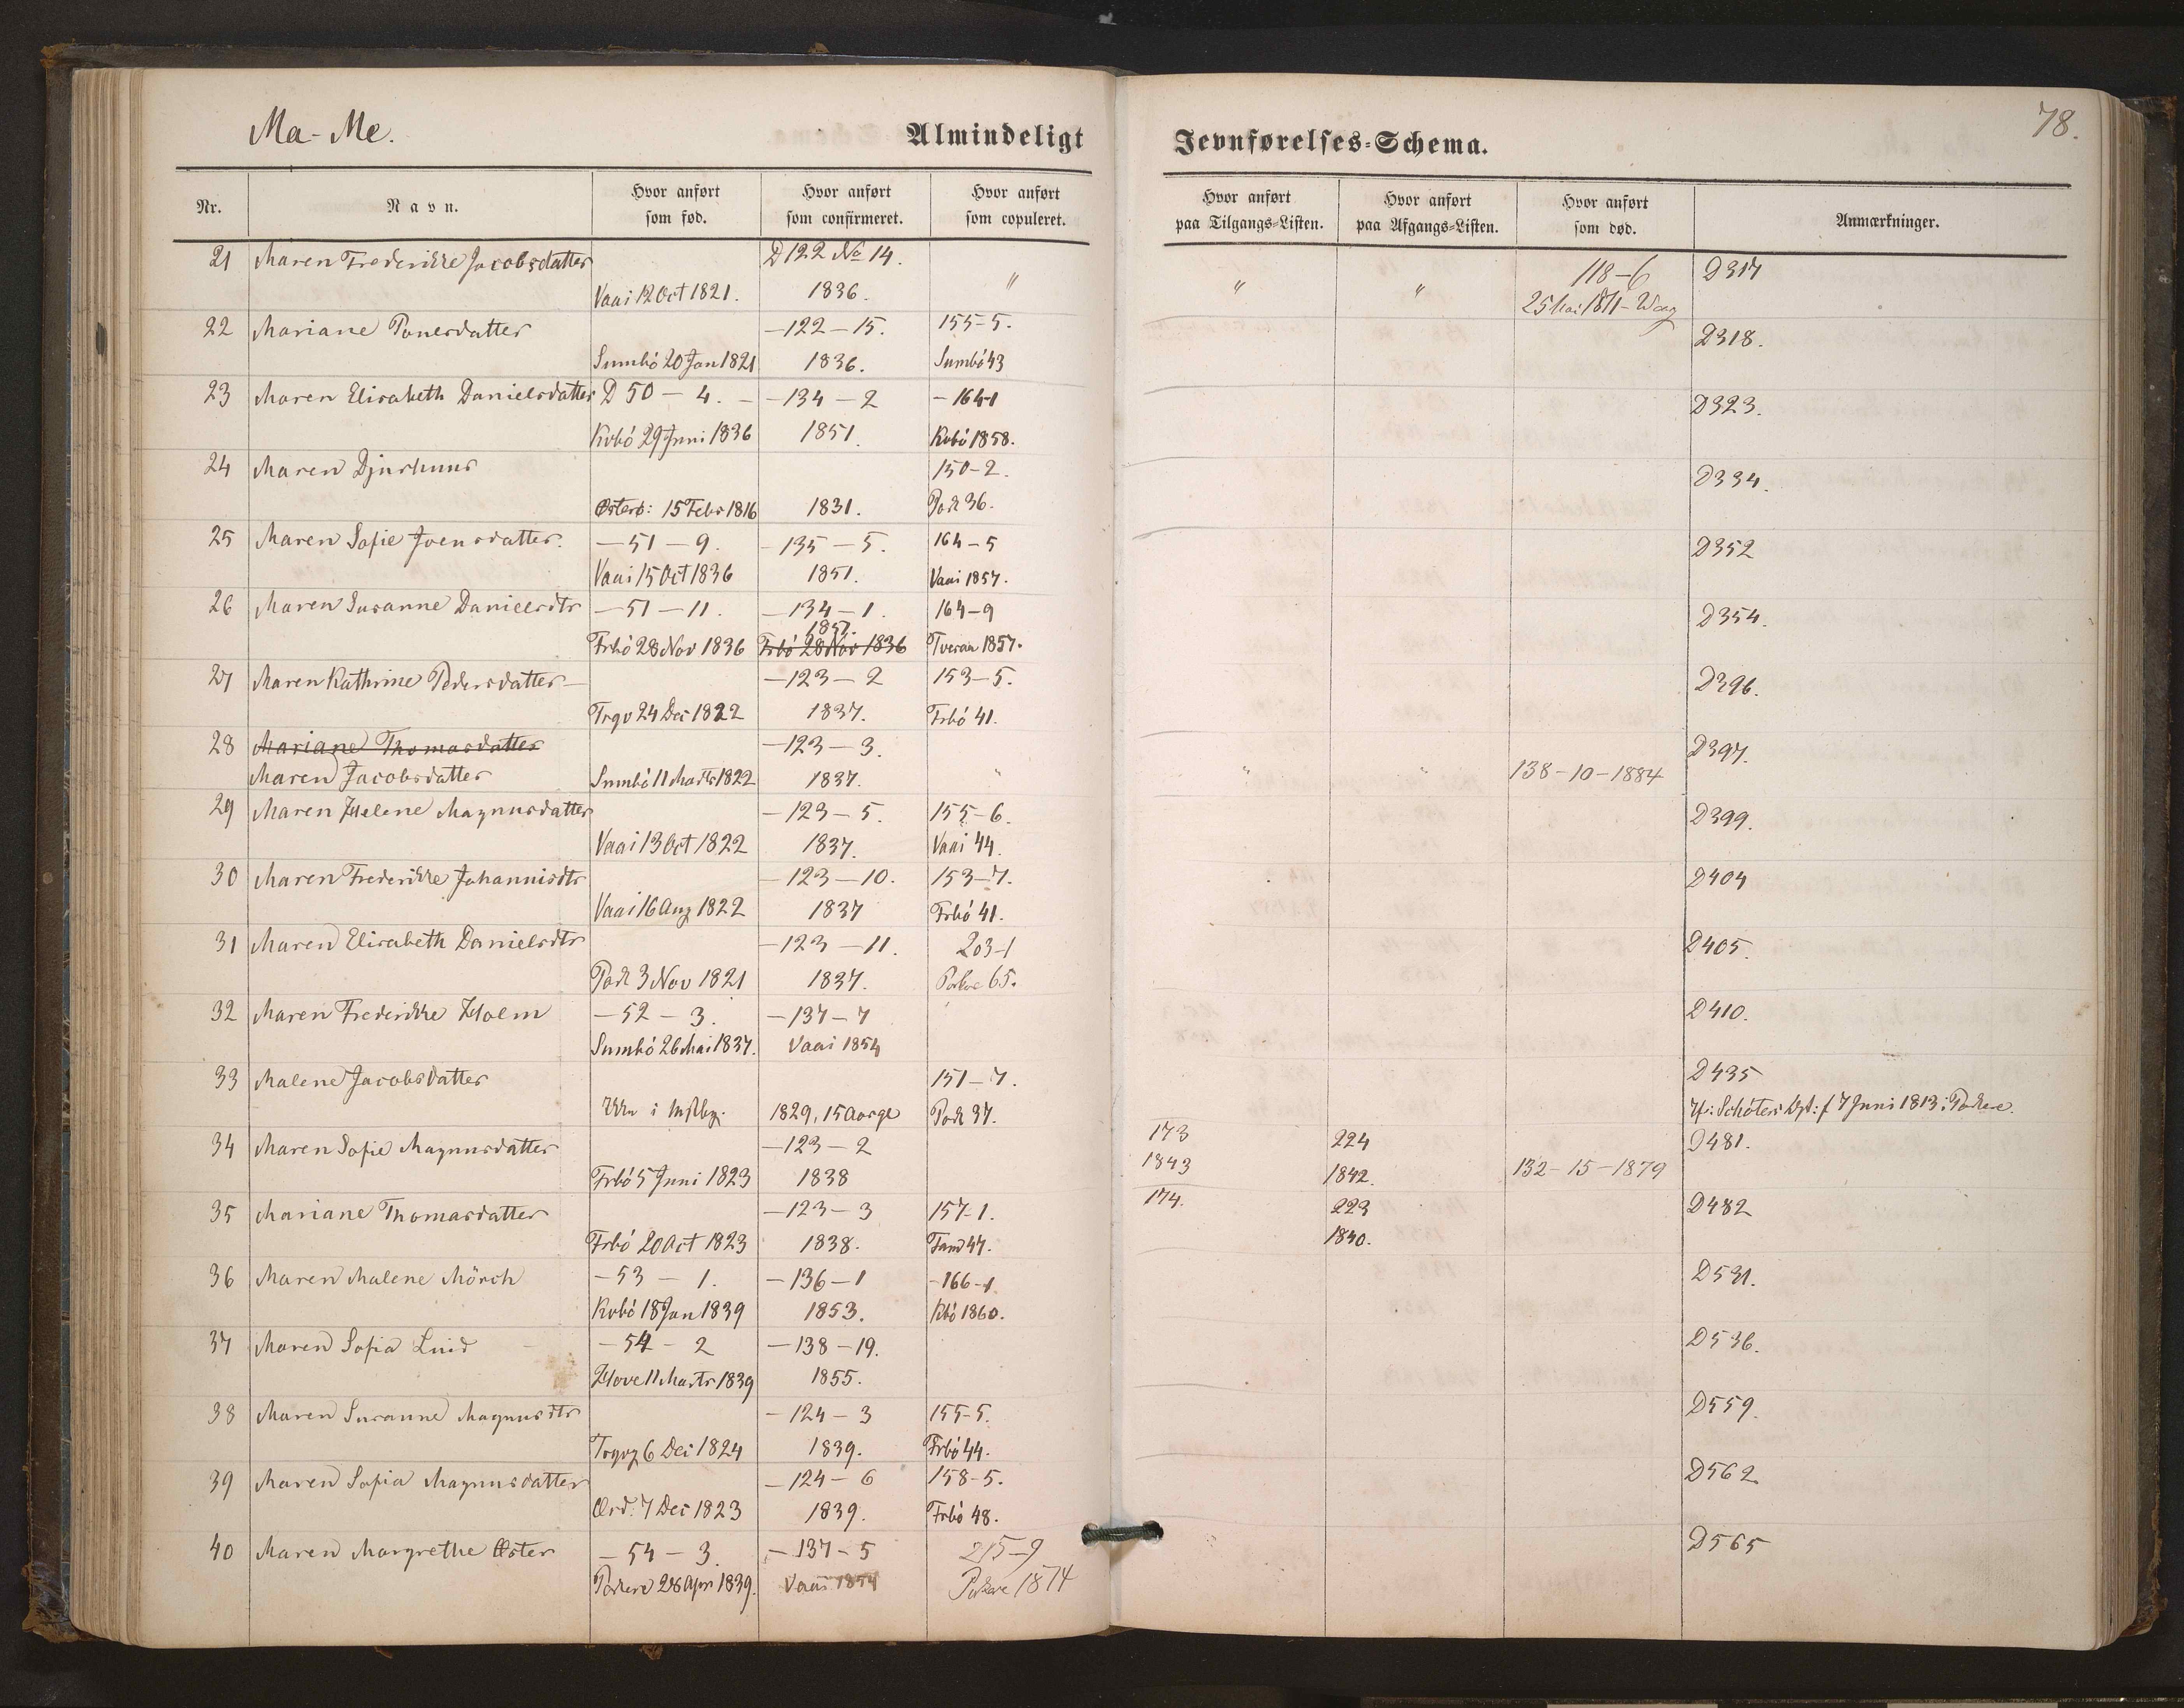 Ma-Me.
Almindeligt
Jevnførelses-Schema.
78.
Nr.
Navn.
Hvor anført som fød.
Hvor anført som confirmeret.
Hvor anført som copuleret.
Hvor anført paa Tilgangs-Listen.
Hvor anført paa Afgangs-Listen.
Hvor anført som død.
Anmærkninger.
21 Maren Frederikke Jacobsdatter D 122 No 14. 118-6 D317
Vaai 12 Oct 1821. 1836. " " " 25 Mai 1871 - Waag
22 Mariane Poulsdatter -122-15. 155-5. D318.
Sumbó 20 Jan 1821 1836. Sumbó 43
23 Maren Elisabeth Danielsdatter D 50-4. -134-2 -164-1 D323.
Kvbó 29 Juni 1836 1851. Kvbó 1858.
24 Maren Djurhuus 150-2. D334.
Østerö: 15 Febr 1816 1831. Pork 36.
25 Maren Sofie Joensdatter. -51-9. -135-5. 164-5 D352
Vaai 15 Oct 1836 1851. Vaai 1857.
26 Maren Susanne Danielsdtr -51-11. -134-1. 164-9 D354.
1851.
Frbó 28 Nov 1836 Frbó 28 Nov 1836 Tveraa 1857.
27 Maren Kathrine Pedersdatter -123-2 153-5. D396.
Trgv 24 Dec 1822 1837. Frbó 41.
28 Mariane Thomasdatter -123-3. D397.
Maren Jacobsdatter Sumbó 11 Marts 1822 1837. " " " 138-10-1884
29 Maren Helene Magnusdatter -123-5. 155-6. D399.
Vaai 13 Oct 1822 1837. Vaai 44.
30 Maren Frederikke Johannisdtr -123-10. 153-7. D404
Vaai 16 Aug 1822 1837 Frbó 41.
31 Maren Elisabeth Danielsdtr -123-11. 203-1 D405.
Pork 3 Nov 1821 1837. Porkere 65.
32 Maren Frederikke Holm -52-3. -137-7 D410.
Sumbó 26 Mai 1837. Vaai 1854
33 Malene Jacobsdatter 151-7. D435
1829, 15 Aarge Pork 37. f 7 Juni 1813 i Porkere.
34 Maren Sofie Magnusdatter -123-2 173 224 D481.
Frbó 5 Juni 1823 1838 1843 1842. 132-15-1879
35 Mariane Thomasdatter -123-3 157-1. 174. 223 D482
Frbó 20 Oct 1823 1838. Famd 47. 1840.
36 Maren Malene Mörch -53-1. -136-1 -166-1. D531.
Kvbó 18 Jan 1839 1853. Kbó 1860.
37 Maren Sofia Luid -54-2 -138-19. D536.
Hove 11 Marts 1839 1855.
38 Maren Susanne Magnusdtr -124-3 155-5. D559.
Trgvg 6 Dei 1824 1839. Frbó 44.
39 Maren Sofia Magnusdatter -124-6 158-5. D562
Ørd: 7 Dec 1823 1839. Frbó 48.
40 Maren Margrethe Øster -54-3. -137-5 215-9 D565
Porkere 28 Apr 1839. Vaai 1854 Porkere 1874